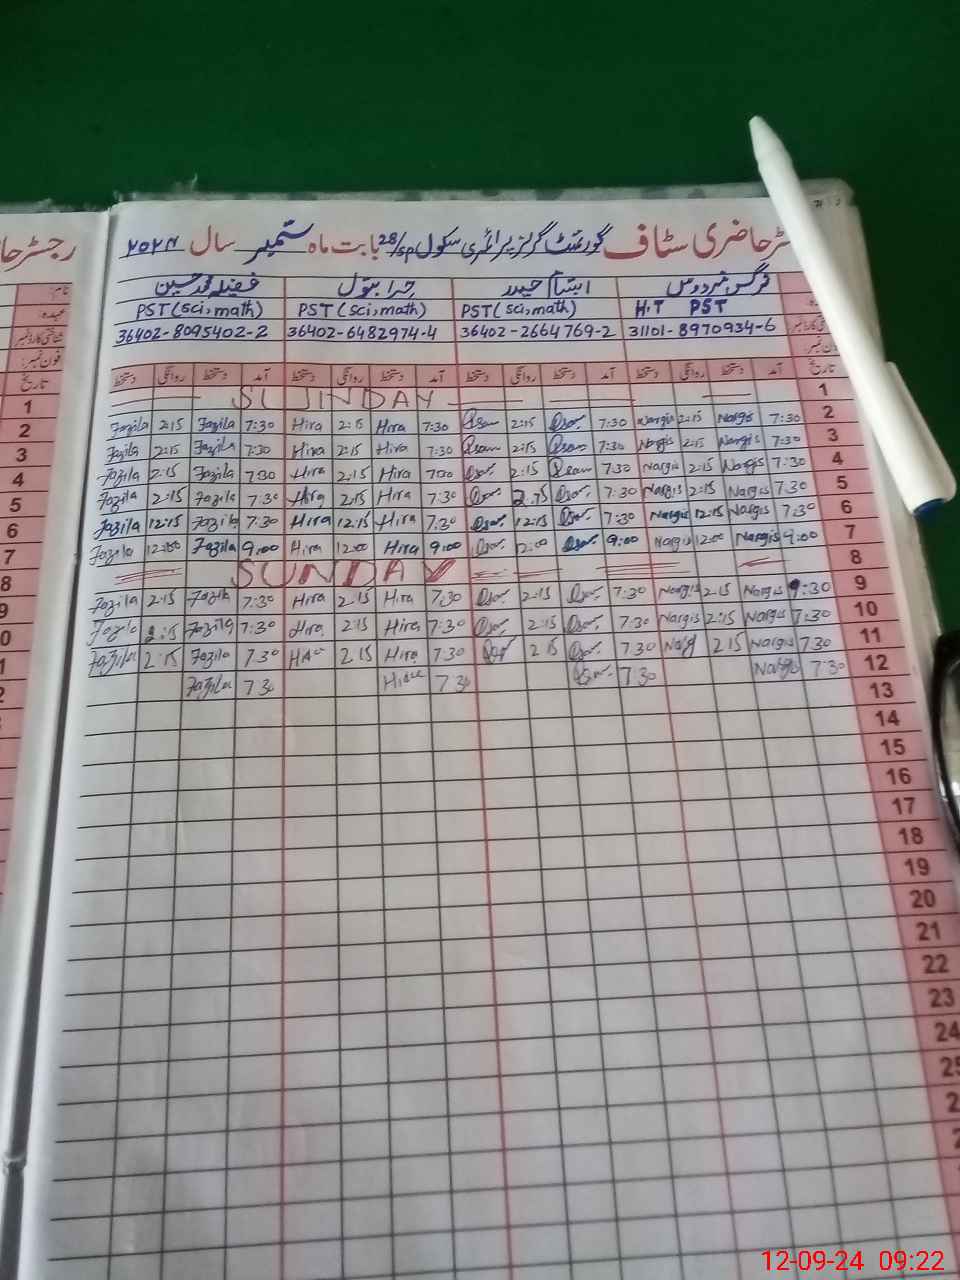 رجسٹر حا
ٹر حاضری سٹاف گورنمنٹ گرلز پرائمری سکول 28/SP بابت ماہ ستمبر سال ۲۰۲۴
نرگس فردوس ابتسام حیدر حرا بتول فضیلہ محمد حسین
H.T PST PST (sci, math) PST (sci, math) PST (sci, math)
31101-8970934-6 36402-2664769-2 36402-6482974-4 36402-8095402-2
تاریخ آمد دستخط روانگی دستخط آمد دستخط روانگی دستخط آمد دستخط روانگی دستخط آمد دستخط روانگی دستخط
1 SUNDAY
2 7:30 Nargis 2:15 Nargis 7:30 2:15 7:30 Hira 2:15 Hira 7:30 Fazila 2:15 Fazila
3 7:30 Nargis 2:15 Nargis 7:30 2:15 7:30 Hira 2:15 Hira 7:30 Fazila 2:15 Fazila
4 7:30 Nargis 2:15 Nargis 7:30 2:15 7:30 Hira 2:15 Hira 7:30 Fazila 2:15 Fazila
5 7:30 Nargis 2:15 Nargis 7:30 2:15 7:30 Hira 2:15 Hira 7:30 Fazila 2:15 Fazila
6 7:30 Nargis 12:15 Nargis 7:30 12:15 7:30 Hira 12:15 Hira 7:30 Fazila 12:15 Fazila
7 9:00 Nargis 12:00 Nargis 9:00 12:00 9:00 Hira 12:00 Hira 9:00 Fazila 12:00 Fazila
8 SUNDAY
9 :30 Nargis 2:15 Nargis 7:30 2:15 7:30 Hira 2:15 Hira 7:30 Fazila 2:15 Fazila
10 7:30 Nargis 2:15 Nargis 7:30 2:15 7:30 Hira 2:15 Hira 7:30 Fazila 2:15 Fazila
11 7:30 Nargis 2:15 7:30 2:15 7:30 Hira 2:15 7:30 Fazila 2:15 Fazila
12 7:30 Nargis 7:30 7:30 7:30 Fazila
13
14
15
16
17
18
19
20
21
22
23
24
25
12-09-24 09:22